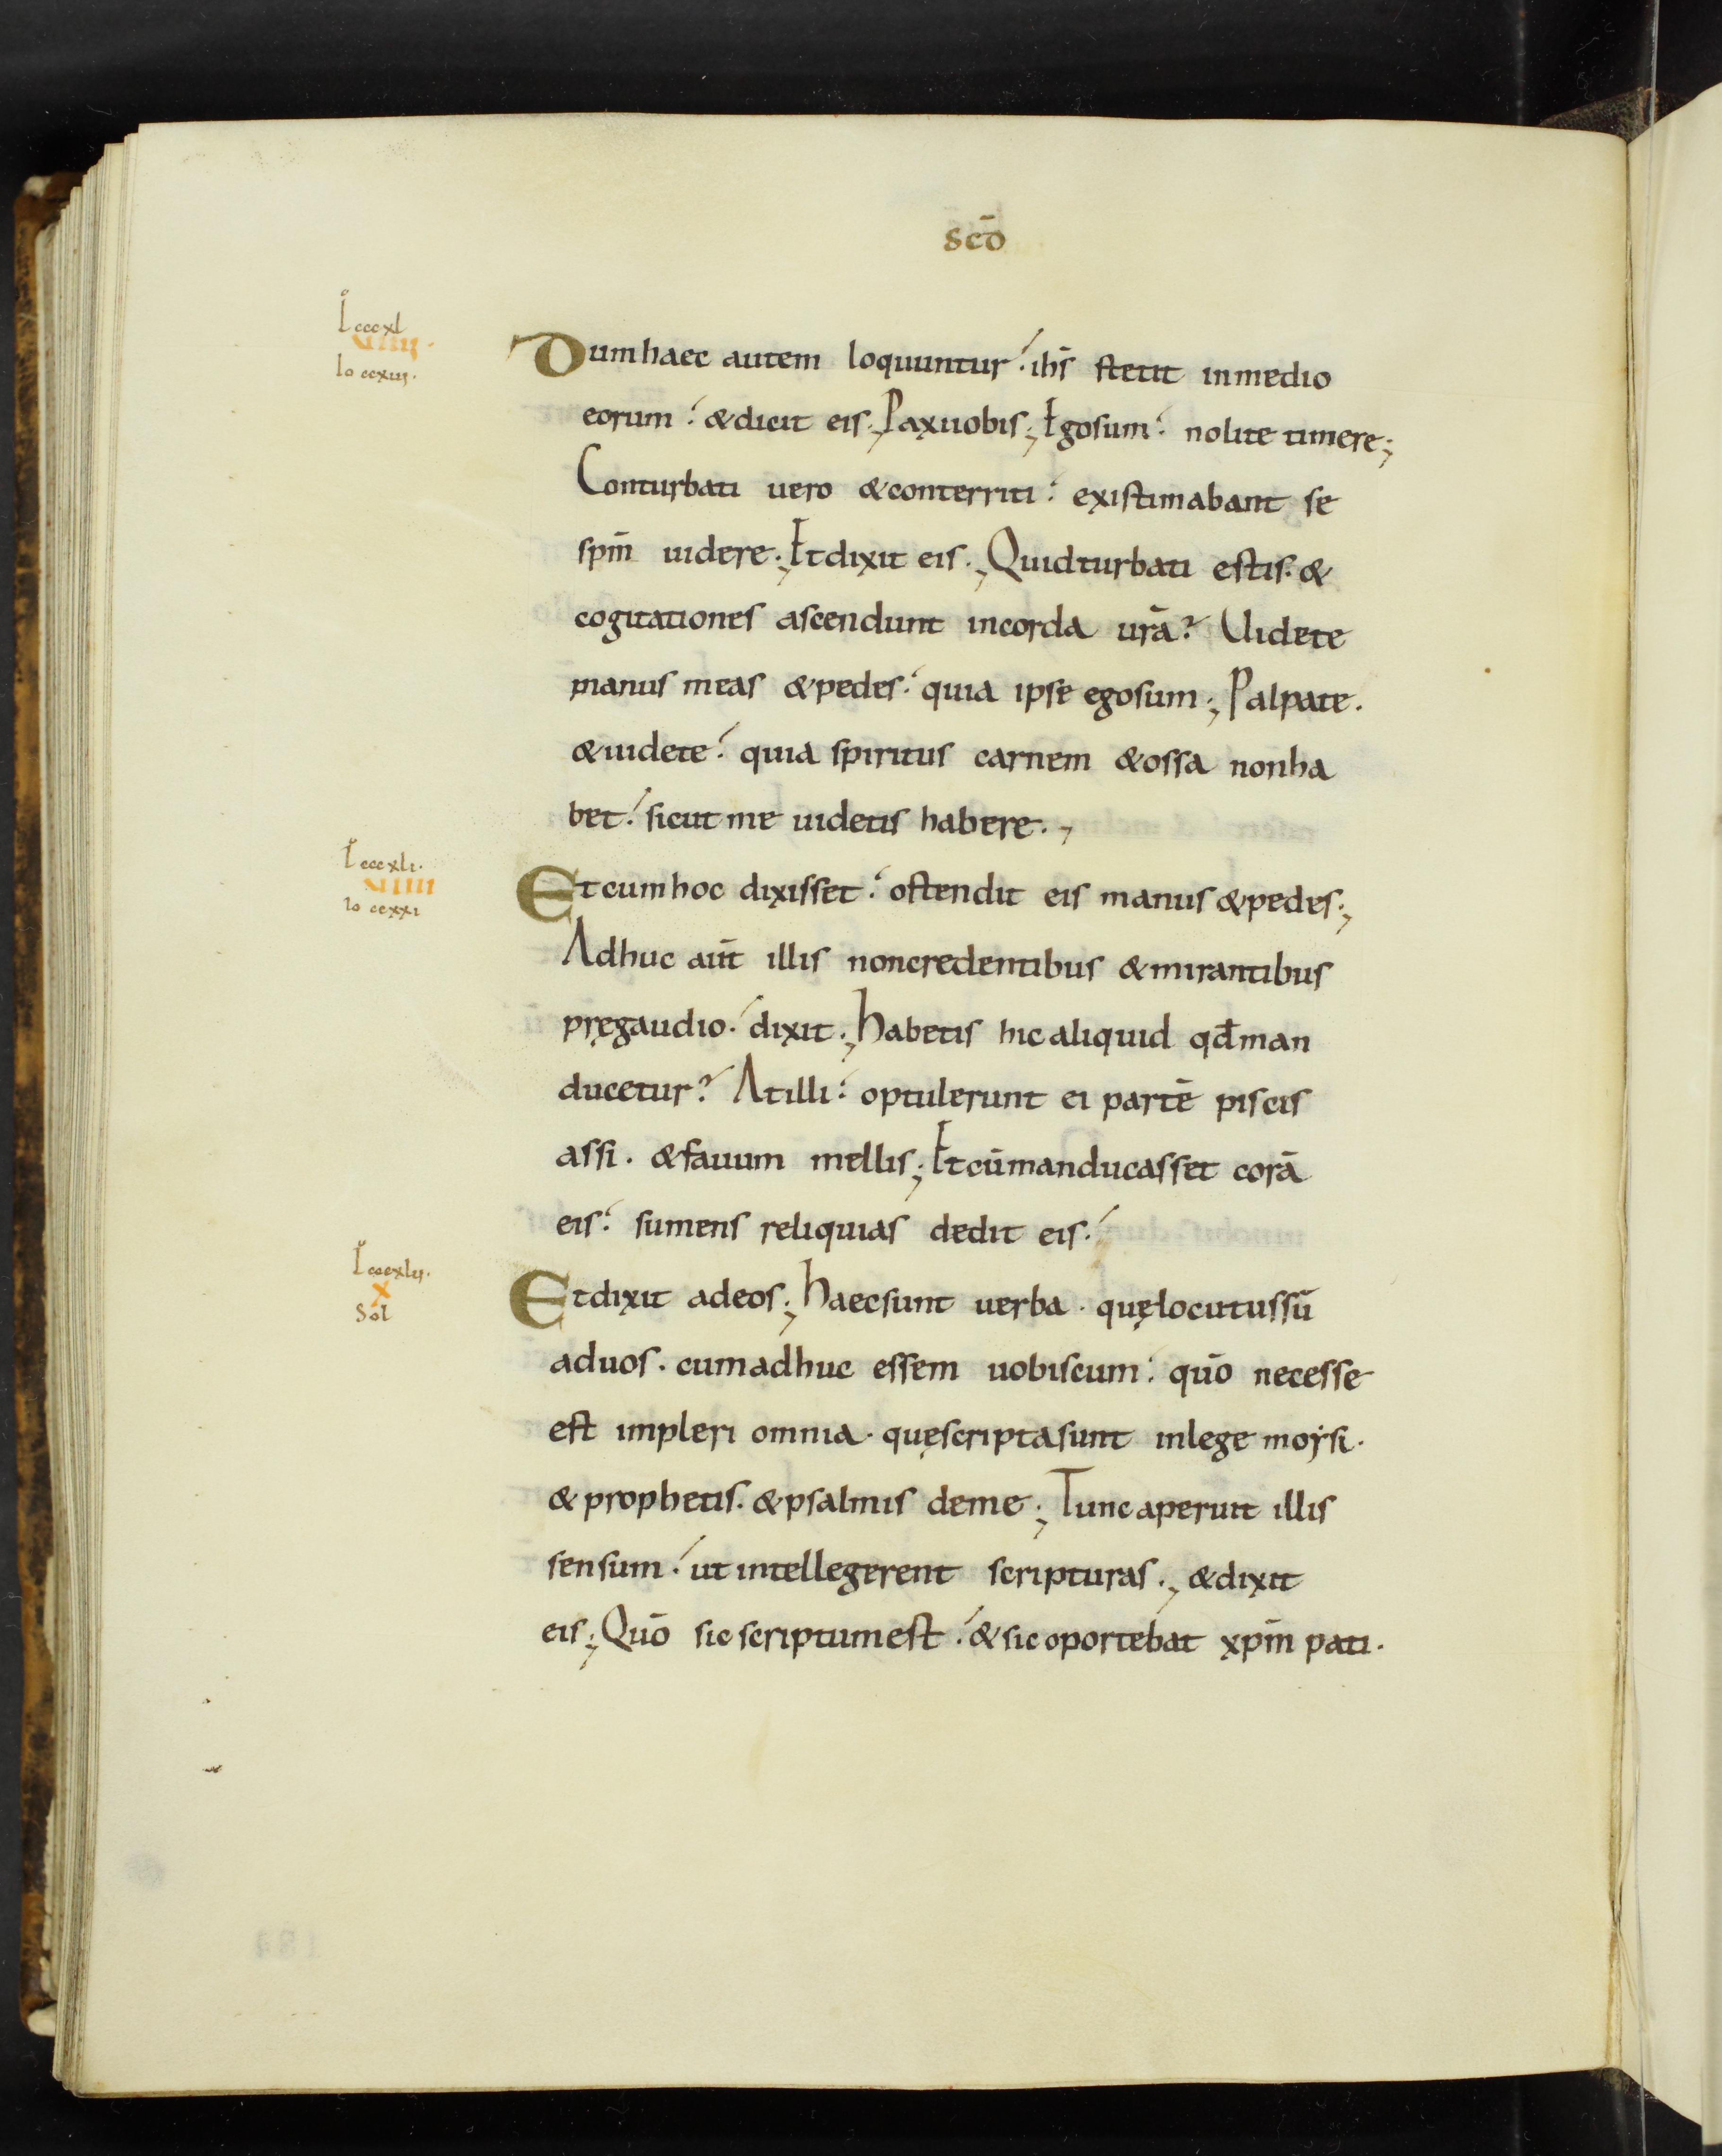 scō
L cccxl
VIIII.
Io ccxiii.
Dum haec autem loquuntur. ihs̄ stetit inmedio
eorum. & dicit eis; Pax uobis; Ego sum. nolite timere;
Conturbati uero & conterriti. existimabant se
spm̄ uidere; Et dixit eis; Quid turbati estis. &
cogitationes ascendunt incorda urā? Uidete
manus meas & pedes. quia ipse ego sum; Palpate.
& uidete. quia spiritus carnem & ossa non ha
bet. sicut me uidetis habere;
L cccxli.
VIIII
Io ccxxi
Et cum hoc dixisset. ostendit eis manus & pedes;
Adhuc aut̄ illis non credentibus & mirantibus
pręgaudio. dixit; habetis hic aliquid qd̄ man
ducetur? At illi. optulerunt ei partē piscis
assi. & fauum mellis; Et cū manducasset corā
eis. sumens reliquias dedit eis.
L cccxlii.
X
Sol
Et dixit adeos; haec sunt uerba. quę locutus sū
aduos. cum adhuc essem uobiscum. quō necesse
est impleri omnia. quę scripta sunt inlege moysi.
& prophetis. & psalmis deme; Tunc aperuit illis
sensum. ut intellegerent scripturas; & dixit
eis; Quō sic scriptum est. & sic oportebat xpm̄ pati.